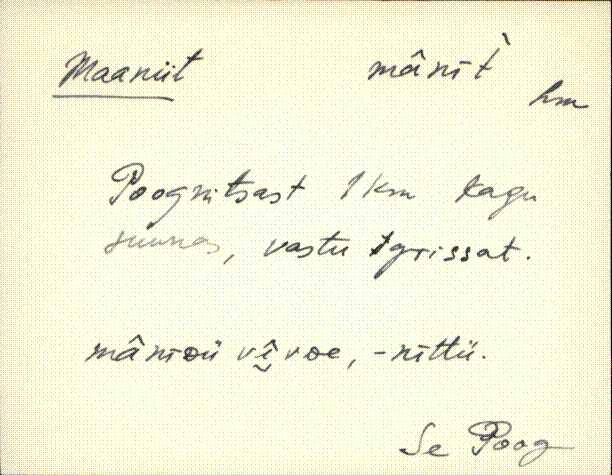 Maaniit mânīt̀
hm
Poognitsast 1 km kagu
suunas, vastu Igrissat.
mânīoü vî̬voe, -nīttü.
Se Poog